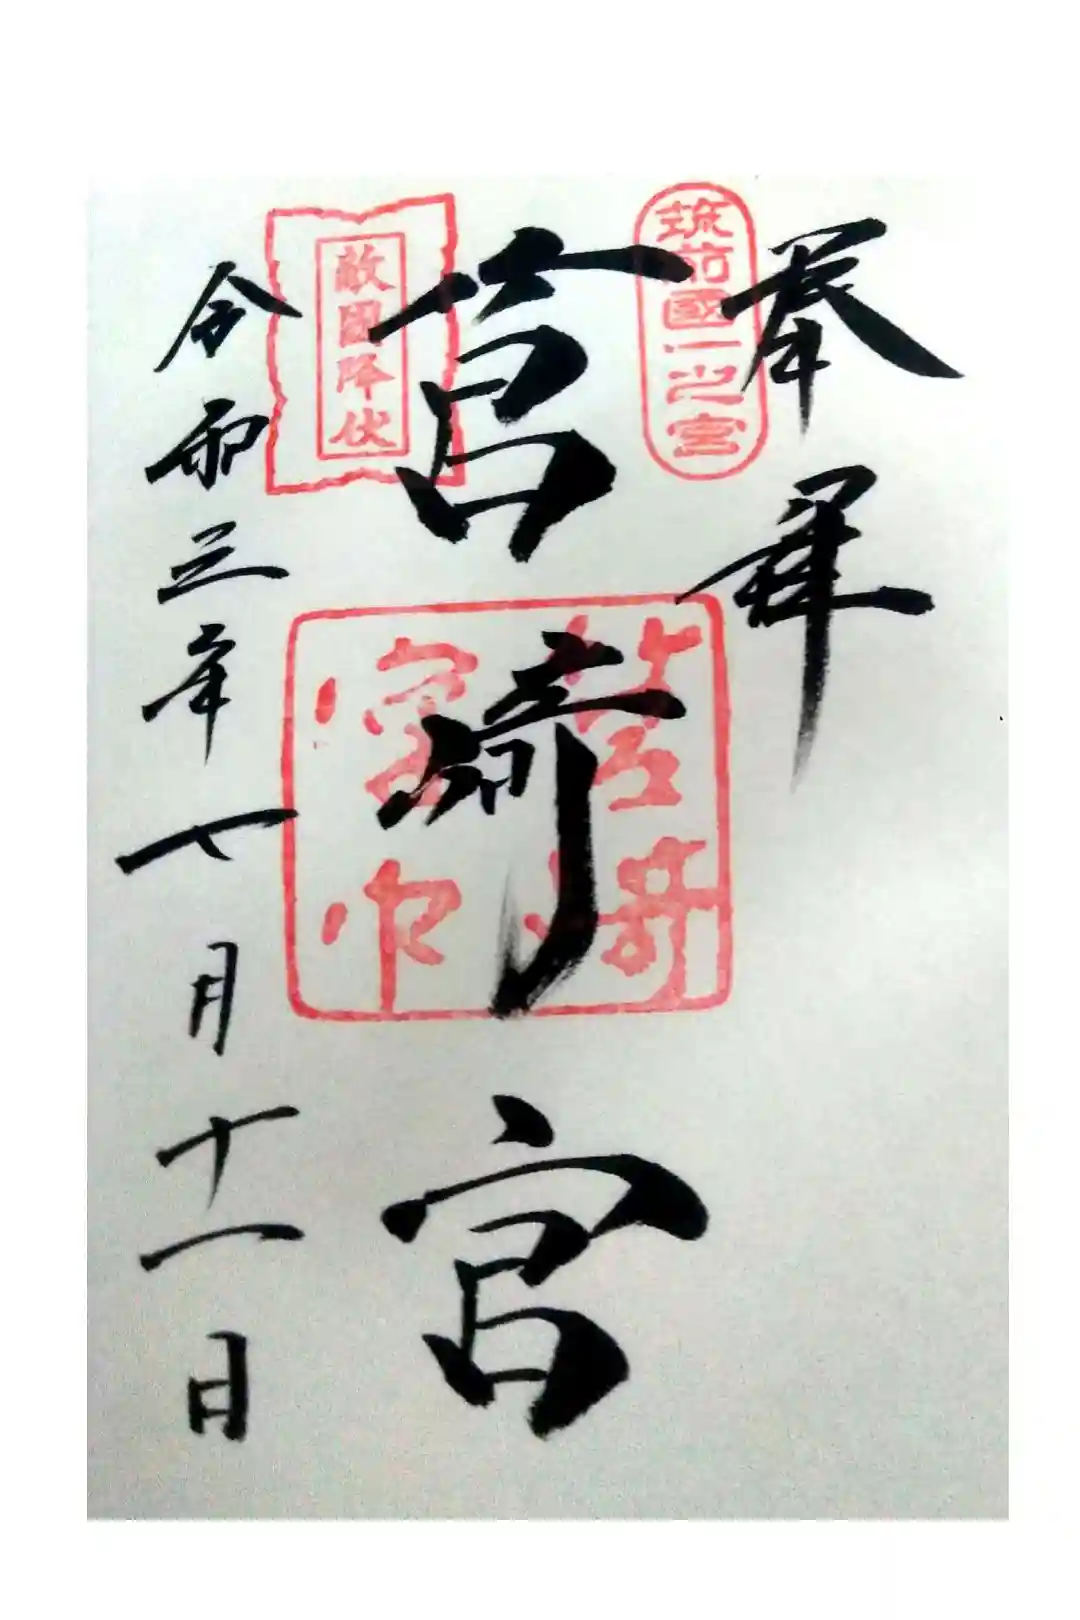 奉拝
筑前國一之宮
筥崎宮
敵國降伏
筥崎宮印
令和三年七月十一日